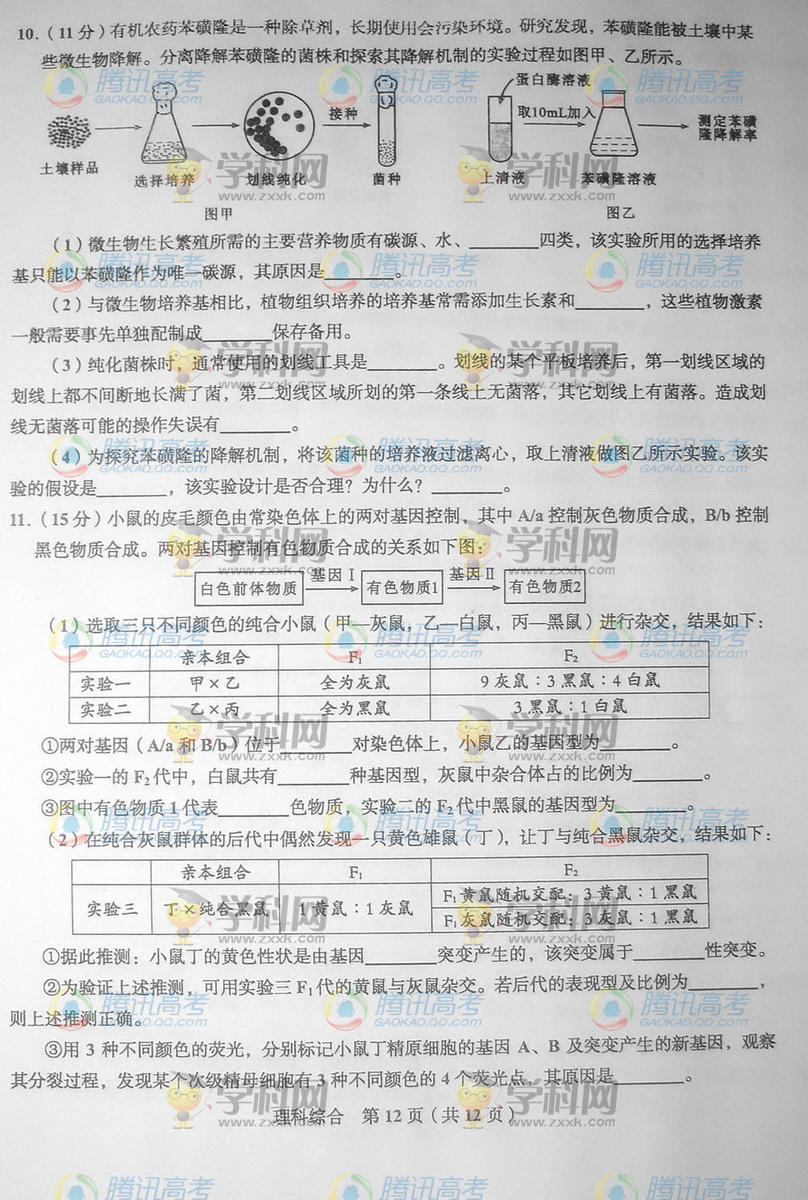 10.（11分）有机农药苯磺隆是一种除草剂，长期使用会污染环境。研究发现，苯磺隆能被土壤中某
些微生物降解。分离降解苯磺隆的菌株和探索其降解机制的实验过程如图甲、乙所示。
蛋白酶溶液
接种
取10mL加入
测定苯磺
隆降解率
土壤样品
选择培养
划线纯化
菌种
上清液
苯磺隆溶液
图甲
图乙
（1）微生物生长繁殖所需的主要营养物质有碳源、水、________四类，该实验所用的选择培养
基只能以苯磺隆作为唯一碳源，其原因是________。
（2）与微生物培养基相比，植物组织培养的培养基常需添加生长素和________，这些植物激素
一般需要事先单独配制成________保存备用。
（3）纯化菌株时，通常使用的划线工具是________。划线的某个平板培养后，第一划线区域的
划线上都不间断地长满了菌，第二划线区域所划的第一条线上无菌落，其它划线上有菌落。造成划
线无菌落可能的操作失误有________。
（4）为探究苯磺隆的降解机制，将该菌种的培养液过滤离心，取上清液做图乙所示实验。该实
验的假设是________，该实验设计是否合理？为什么？________。
11.（15分）小鼠的皮毛颜色由常染色体上的两对基因控制，其中 A/a 控制灰色物质合成，B/b 控制
黑色物质合成。两对基因控制有色物质合成的关系如下图：
白色前体物质 基因Ⅰ 有色物质1 基因Ⅱ 有色物质2
（1）选取三只不同颜色的纯合小鼠（甲—灰鼠，乙—白鼠，丙—黑鼠）进行杂交，结果如下：
亲本组合 F₁ F₂
实验一 甲×乙 全为灰鼠 9灰鼠：3黑鼠：4白鼠
实验二 乙×丙 全为黑鼠 3黑鼠：1白鼠
①两对基因（A/a 和 B/b）位于________对染色体上，小鼠乙的基因型为________。
②实验一的 F₂代中，白鼠共有________种基因型，灰鼠中杂合体占的比例为________。
③图中有色物质 1 代表________色物质，实验二的 F₂代中黑鼠的基因型为________。
（2）在纯合灰鼠群体的后代中偶然发现一只黄色雄鼠（丁），让丁与纯合黑鼠杂交，结果如下：
亲本组合 F₁ F₂
实验三 丁×纯合黑鼠 1黄鼠：1灰鼠 F₁黄鼠随机交配：3黄鼠：1黑鼠
F₁灰鼠随机交配：3灰鼠：1黑鼠
①据此推测：小鼠丁的黄色性状是由基因________突变产生的，该突变属于________性突变。
②为验证上述推测，可用实验三 F₁代的黄鼠与灰鼠杂交。若后代的表现型及比例为________，
则上述推测正确。
③用 3 种不同颜色的荧光，分别标记小鼠丁精原细胞的基因 A、B 及突变产生的新基因，观察
其分裂过程，发现某个次级精母细胞有 3 种不同颜色的 4 个荧光点，其原因是________。
理科综合 第12页（共12页）